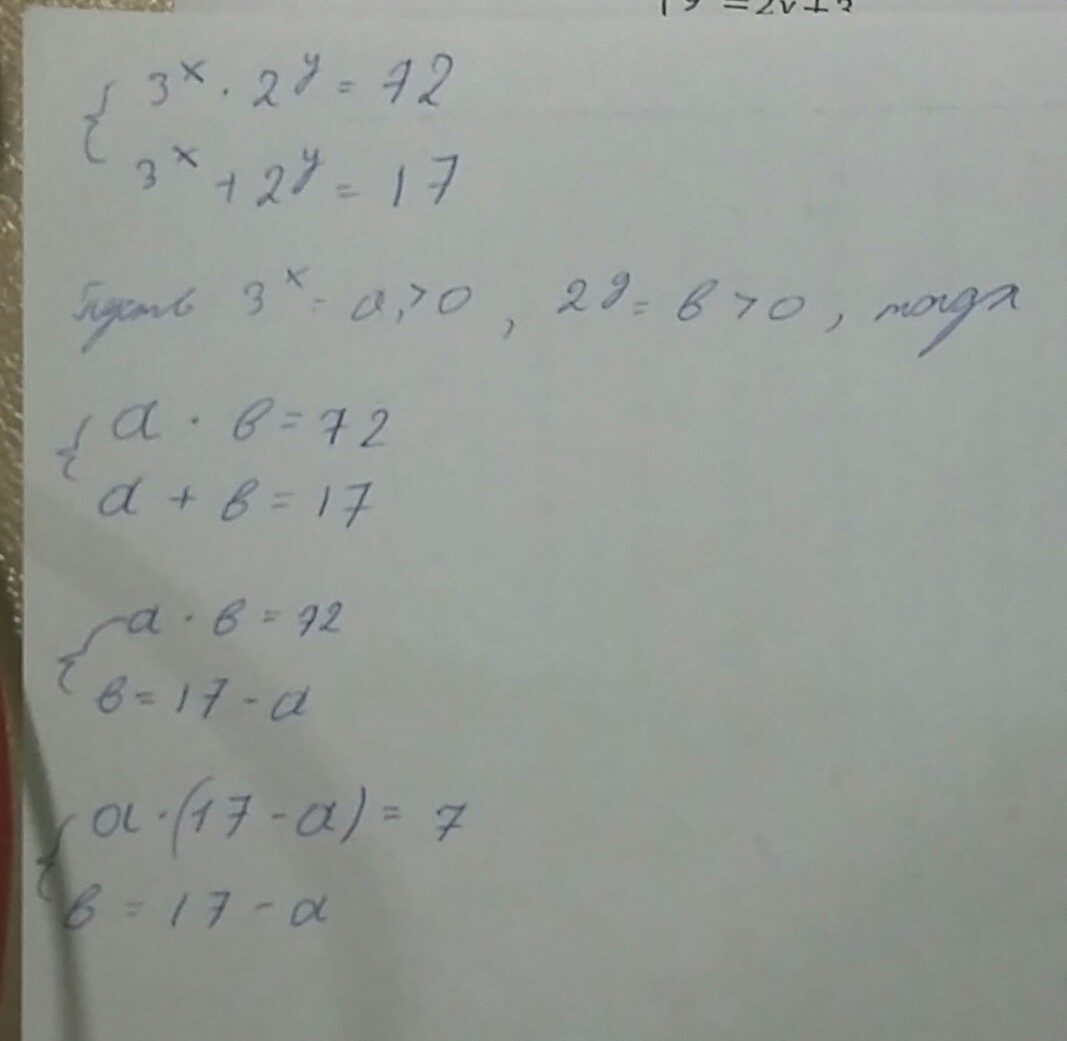 { 3^x · 2^y = 72
3^x + 2^y = 17
Пусть 3^x = a > 0, 2^y = в > 0, тогда
{ a · в = 72
a + в = 17
{ a · в = 72
в = 17 - a
{ a · (17 - a) = 7
в = 17 - a